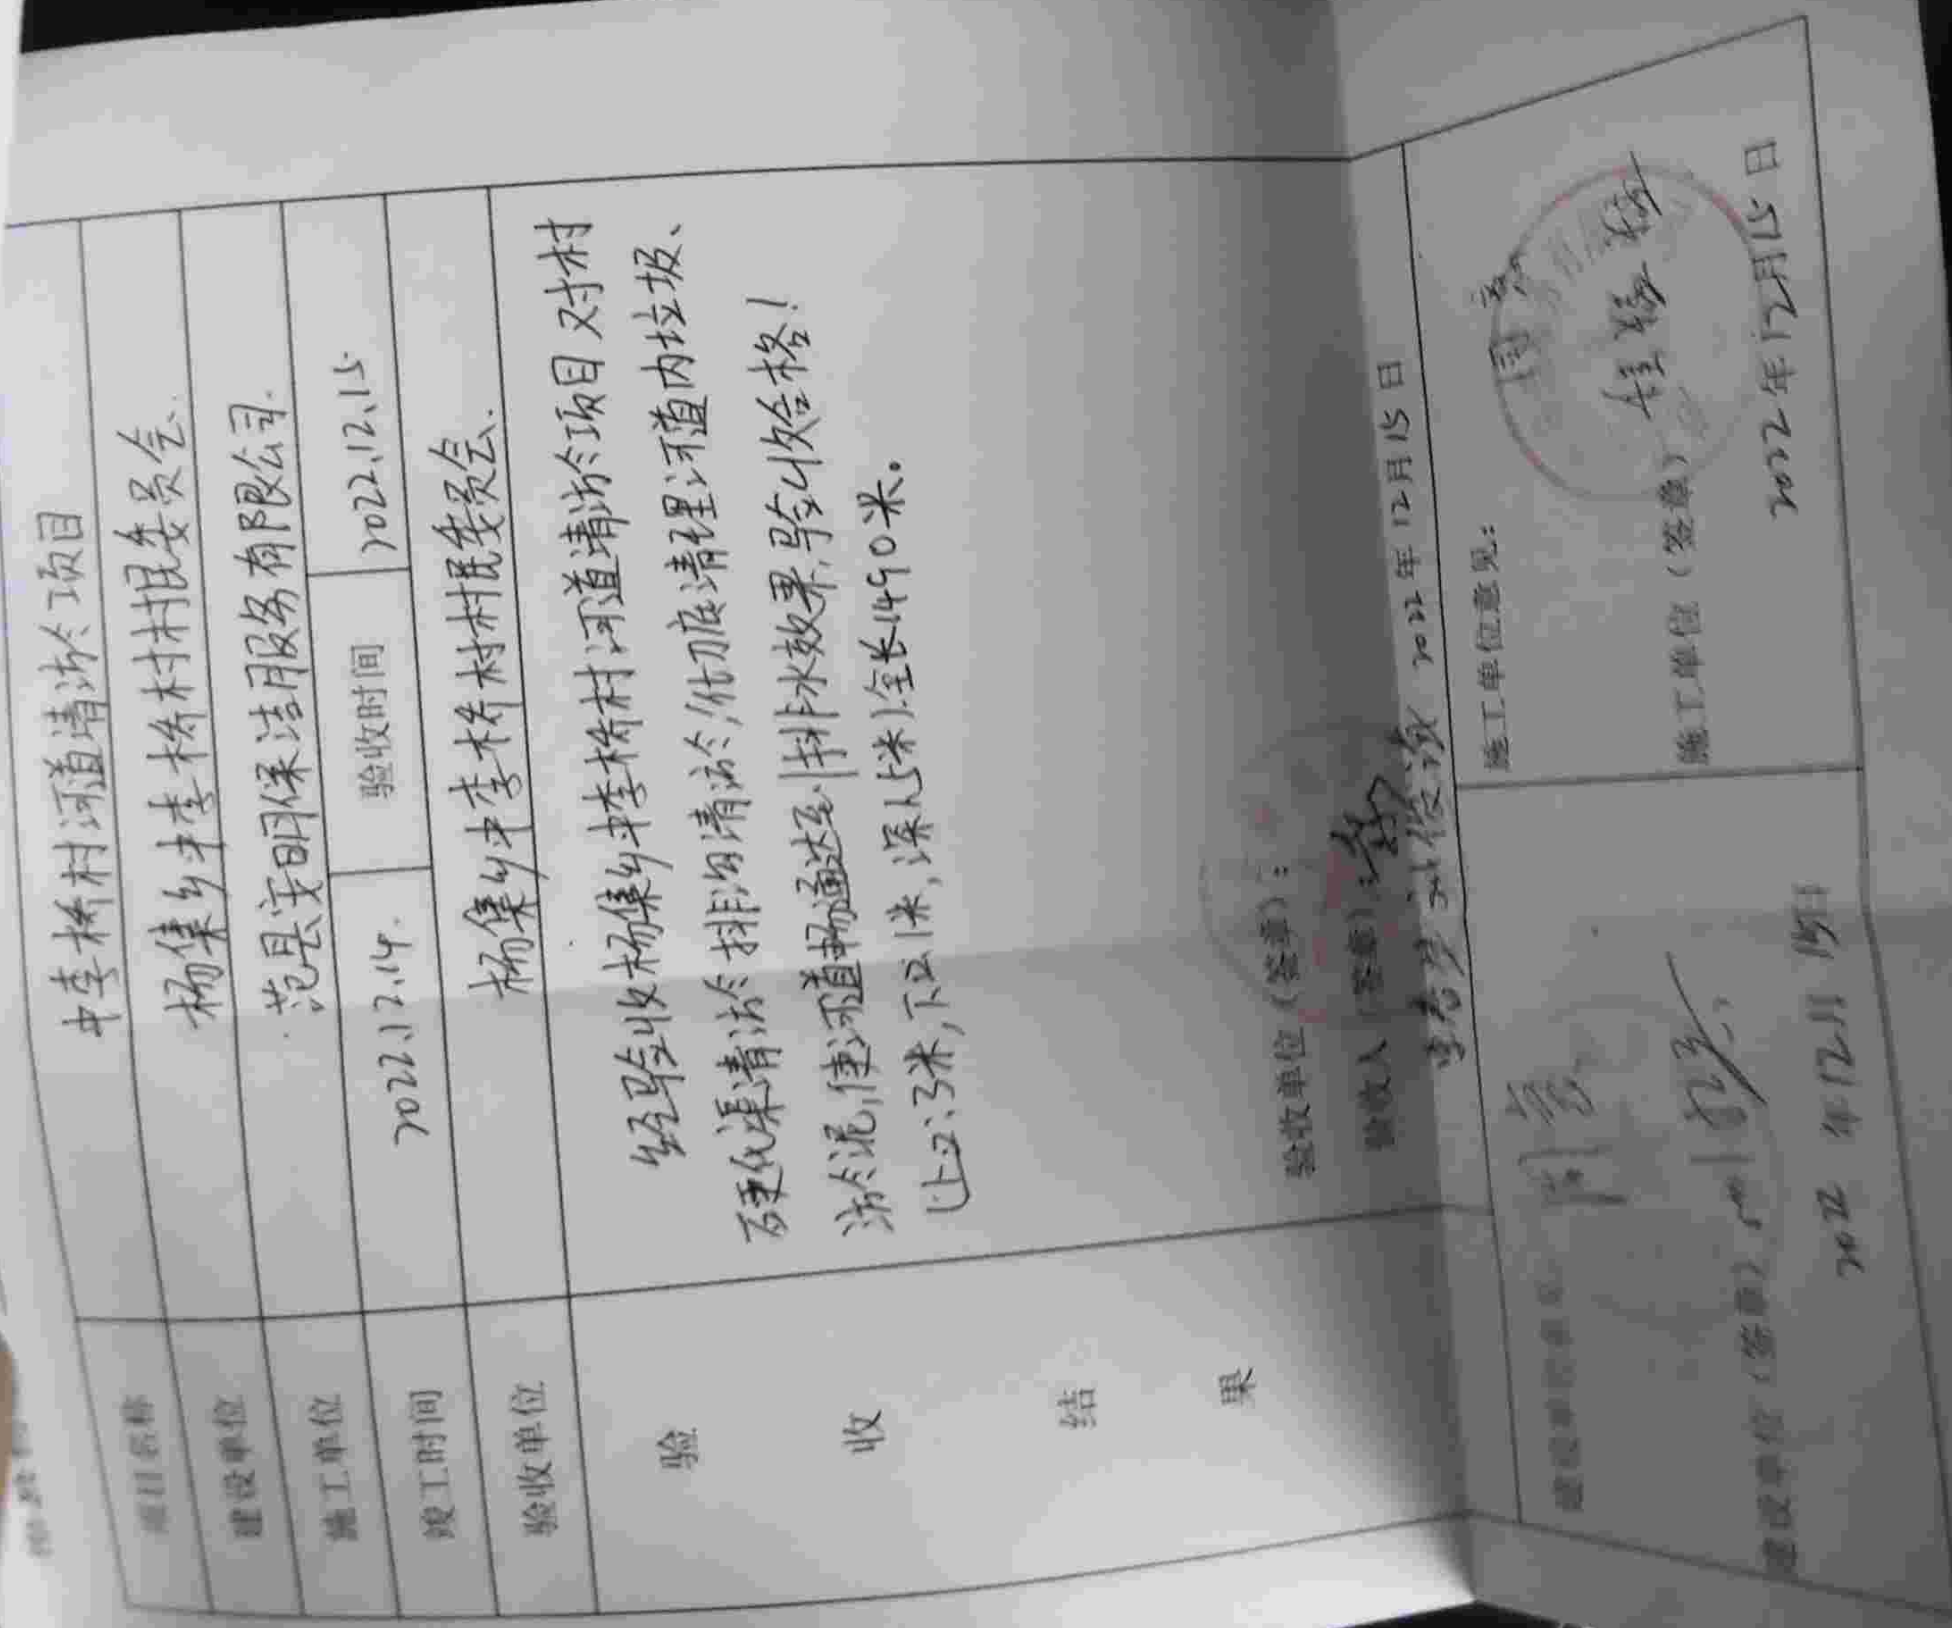 项目名称 中李桥村河道清淤项目
建设单位 杨集乡中李桥村村民委员会.
施工单位 范县实明保洁服务有限公司.
竣工时间 2022.12.14. 验收时间 2022.12.15
验收单位 杨集乡中李桥村村民委员会.
验收结果
经验收杨集乡中李桥村河道清淤项目对村
硬化渠清淤排沟清淤,彻底清理河道内垃圾、
淤泥,使河道畅通达到排水效果,验收合格!
(上口:3米,下口1米,深1.5米).全长1490米。
验收单位(签章):
验收人(签章):
2022年12月15日
建设单位意见:
同意
建设单位(签章)
2022年12月15日
施工单位意见:
同意
施工单位(签章)
2022年12月15日